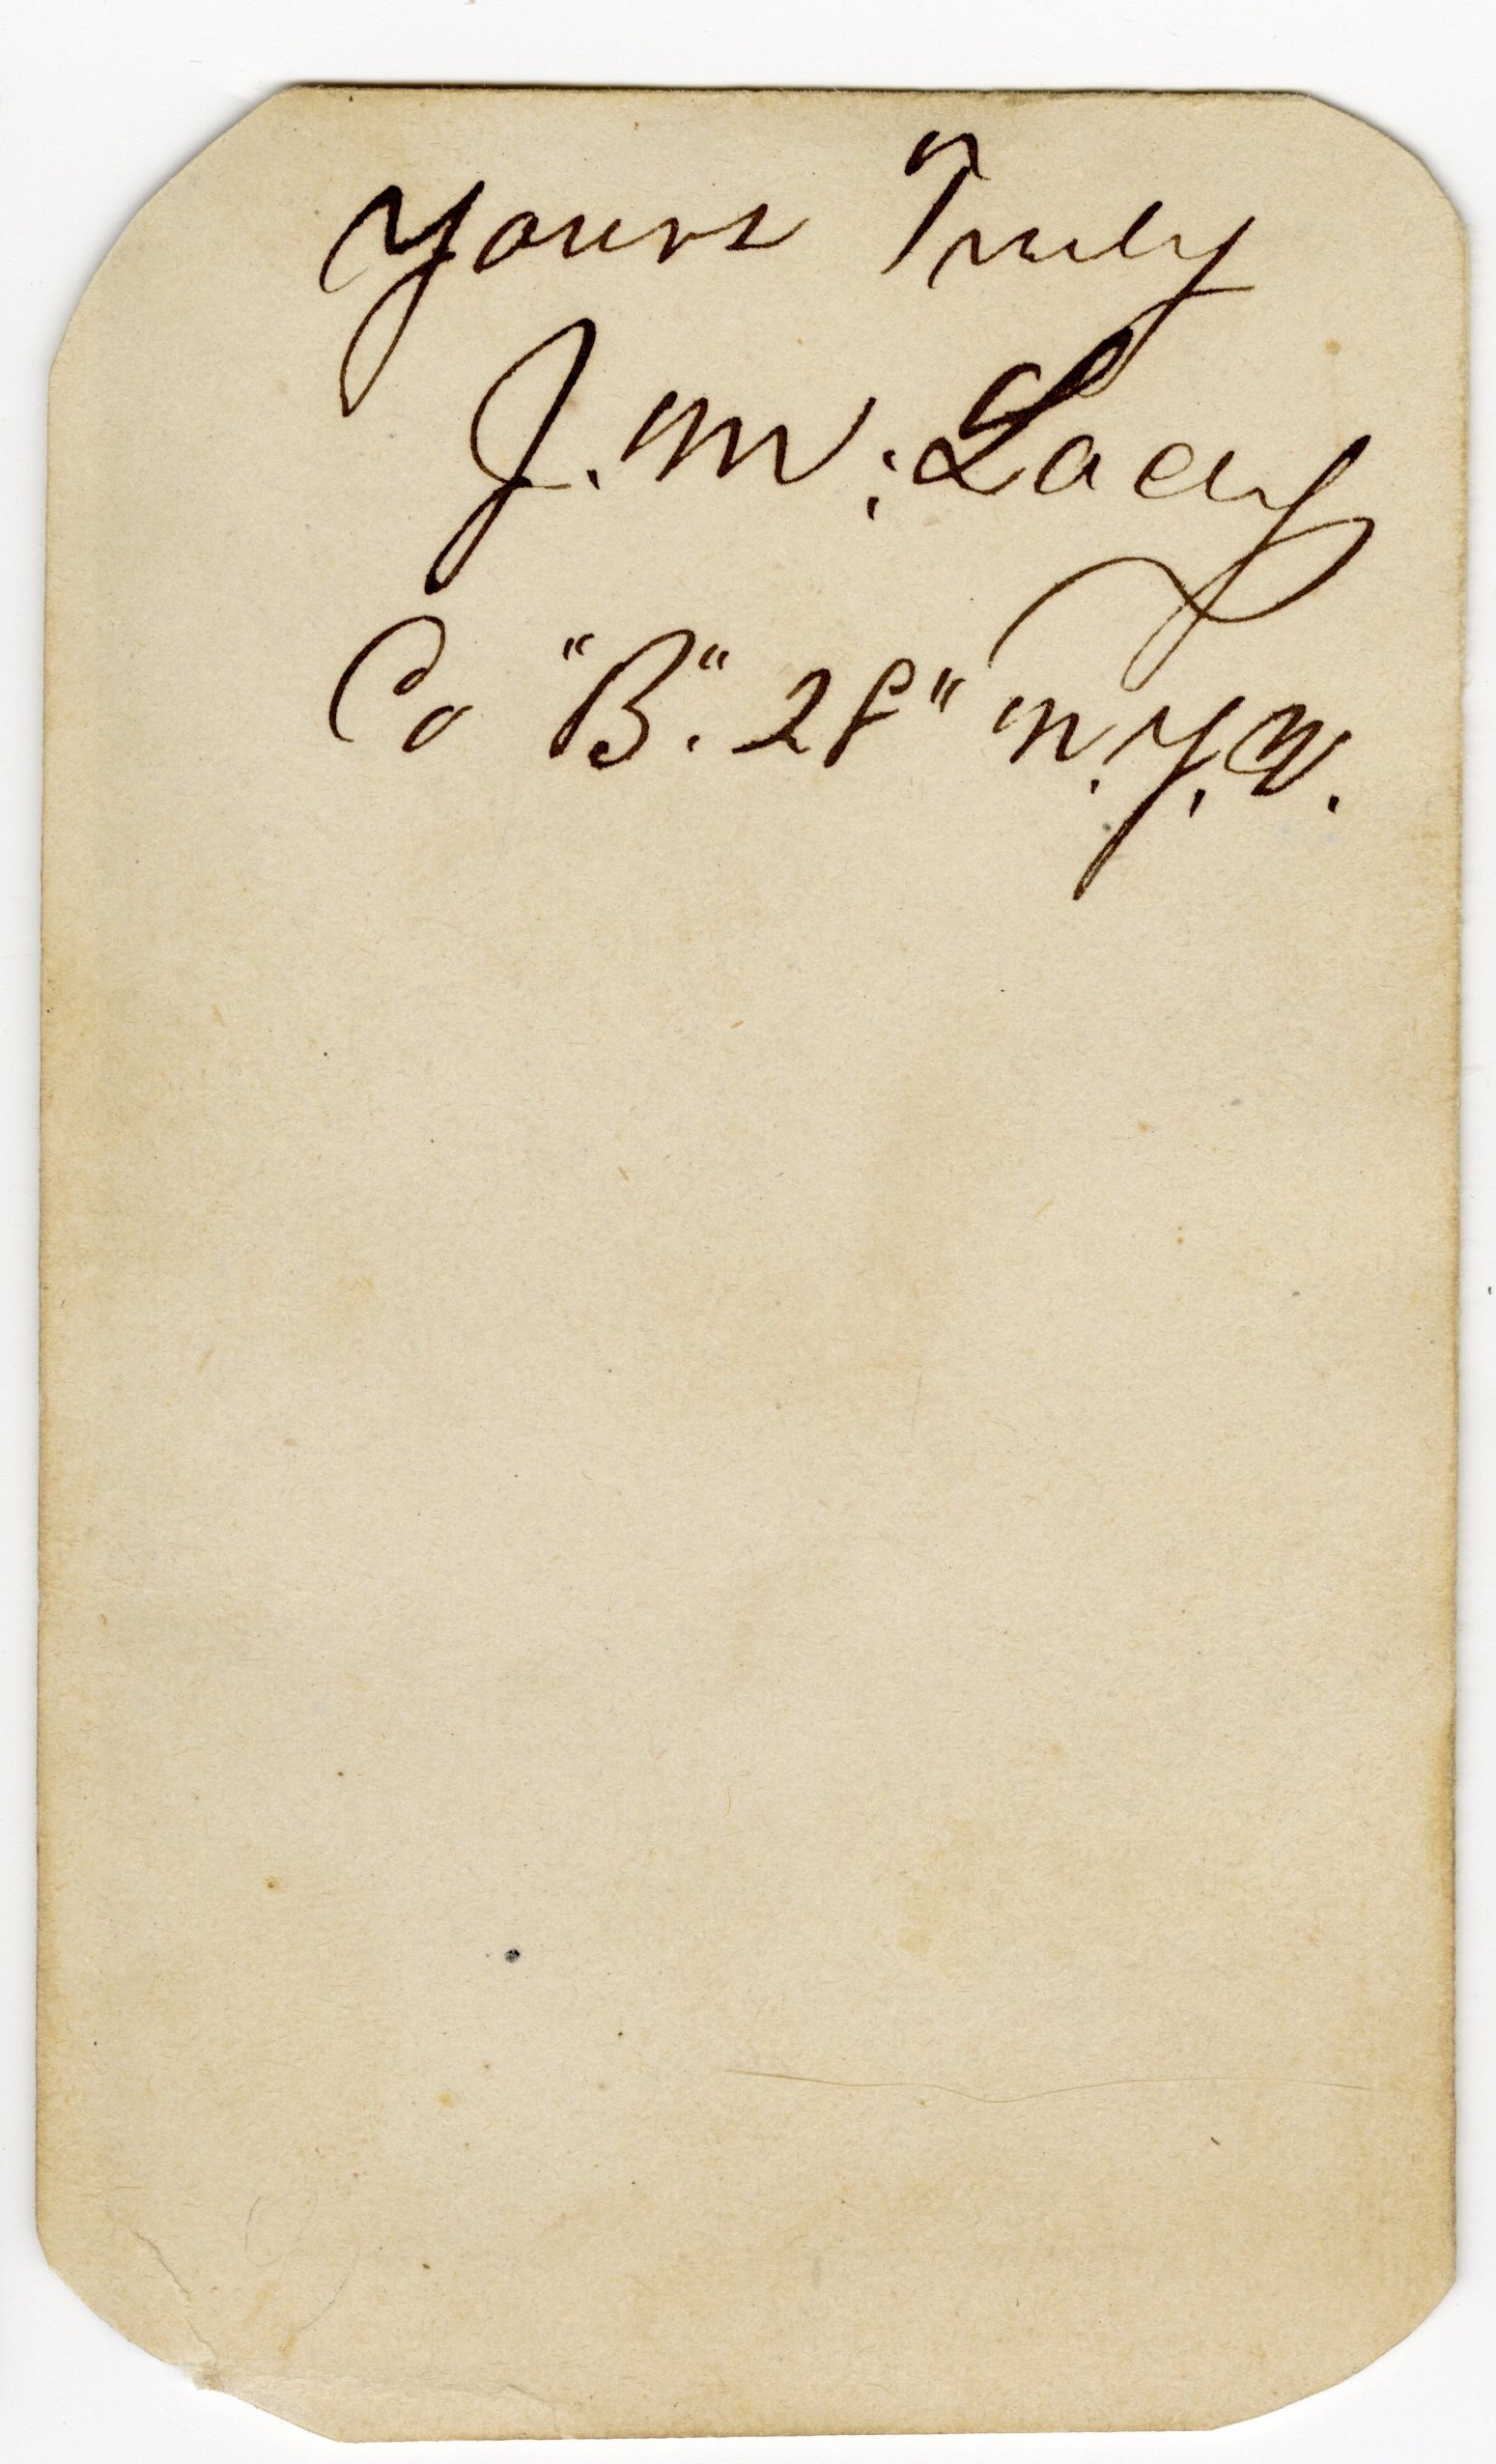 Yours Truly
J. W. Lacy
Co "B". 28" N.Y.V.